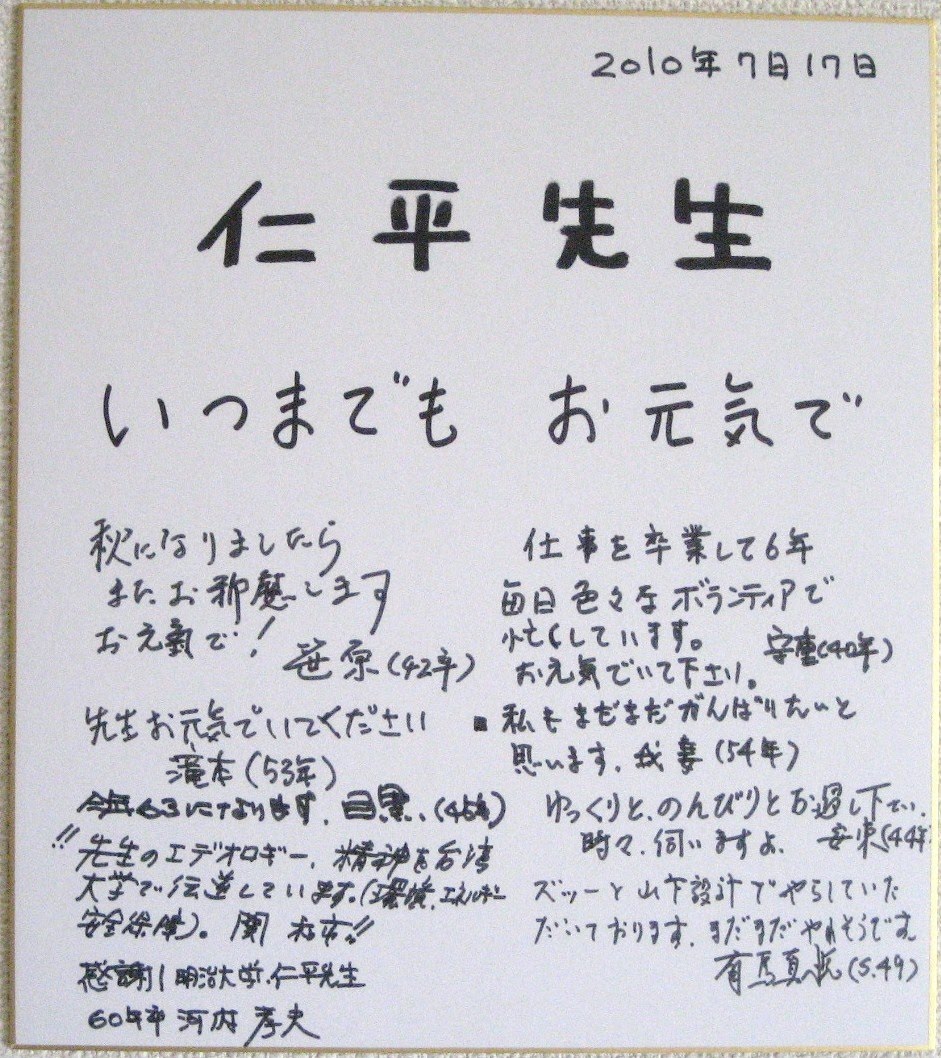 2010年7月17日
仁平先生
いつまでも お元気で
秋になりましたら
またお邪魔します
お元氣で！
笹原(42年)
先生お元気でいてください
滝本(53年)
今年63になります。目黒.(45年)
!!先生のエデオロギー、精神を台湾
大学で伝道しています。(環境、エネルギー
安全保障)。関
感謝！明治大学.仁平先生
60年卒 河内 孝史
仕事を卒業して6年
毎日色々なボランティアで
忙しくしています。
お元気でいて下さい。
安重(40年)
■私もまだまだがんばりたいと
思います。我妻(54年)
ゆっくりと、のんびりとお過し下さい。
時々、伺いますよ。安東(44年)
ズッーと山下設計でやらしていた
だいております。まだまだやれそうです
有馬真(S.49)